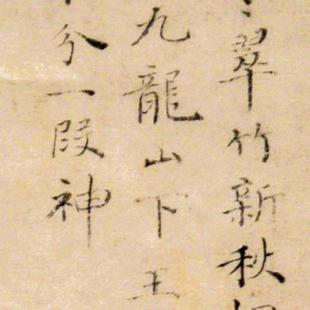 翠竹新秋
九龍山下王
分一段神